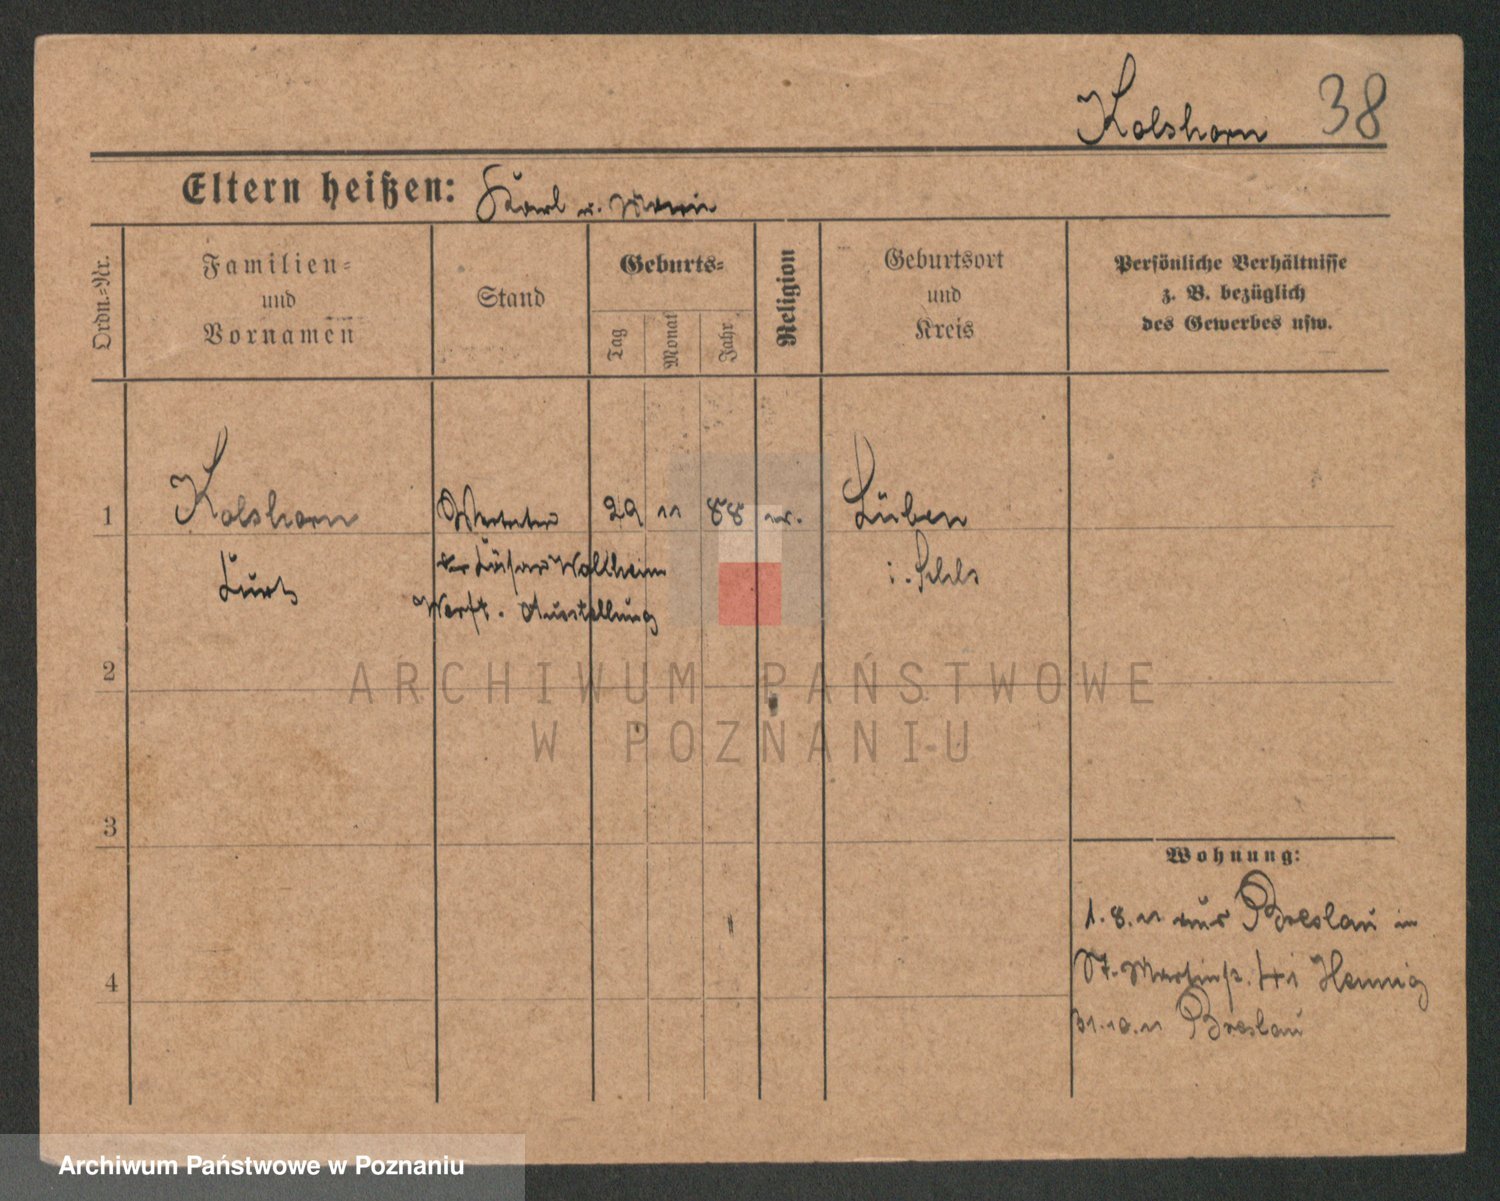 Kolshorn 38
Eltern heißen: Karl u. Marie
Ordn.-Nr.
Familien- und Vornamen
Stand
Geburts-
Tag
Monat
Jahr
Religion
Geburtsort und Kreis
Persönliche Verhältnisse z. B. bezüglich des Gewerbes usw.
1 Kolshorn Vertreter 29 11 88 ev. Lüben
Kurt Cäsar Wollheim i. Schls
Werft. Ausstellung
2
ARCHIWUM PAŃSTWOWE
W POZNANIU
3
Wohnung:
1.8.11 aus Breslau in
St. Martinstr. Hennig
4
31.10.11 Breslau
Archiwum Państwowe w Poznaniu